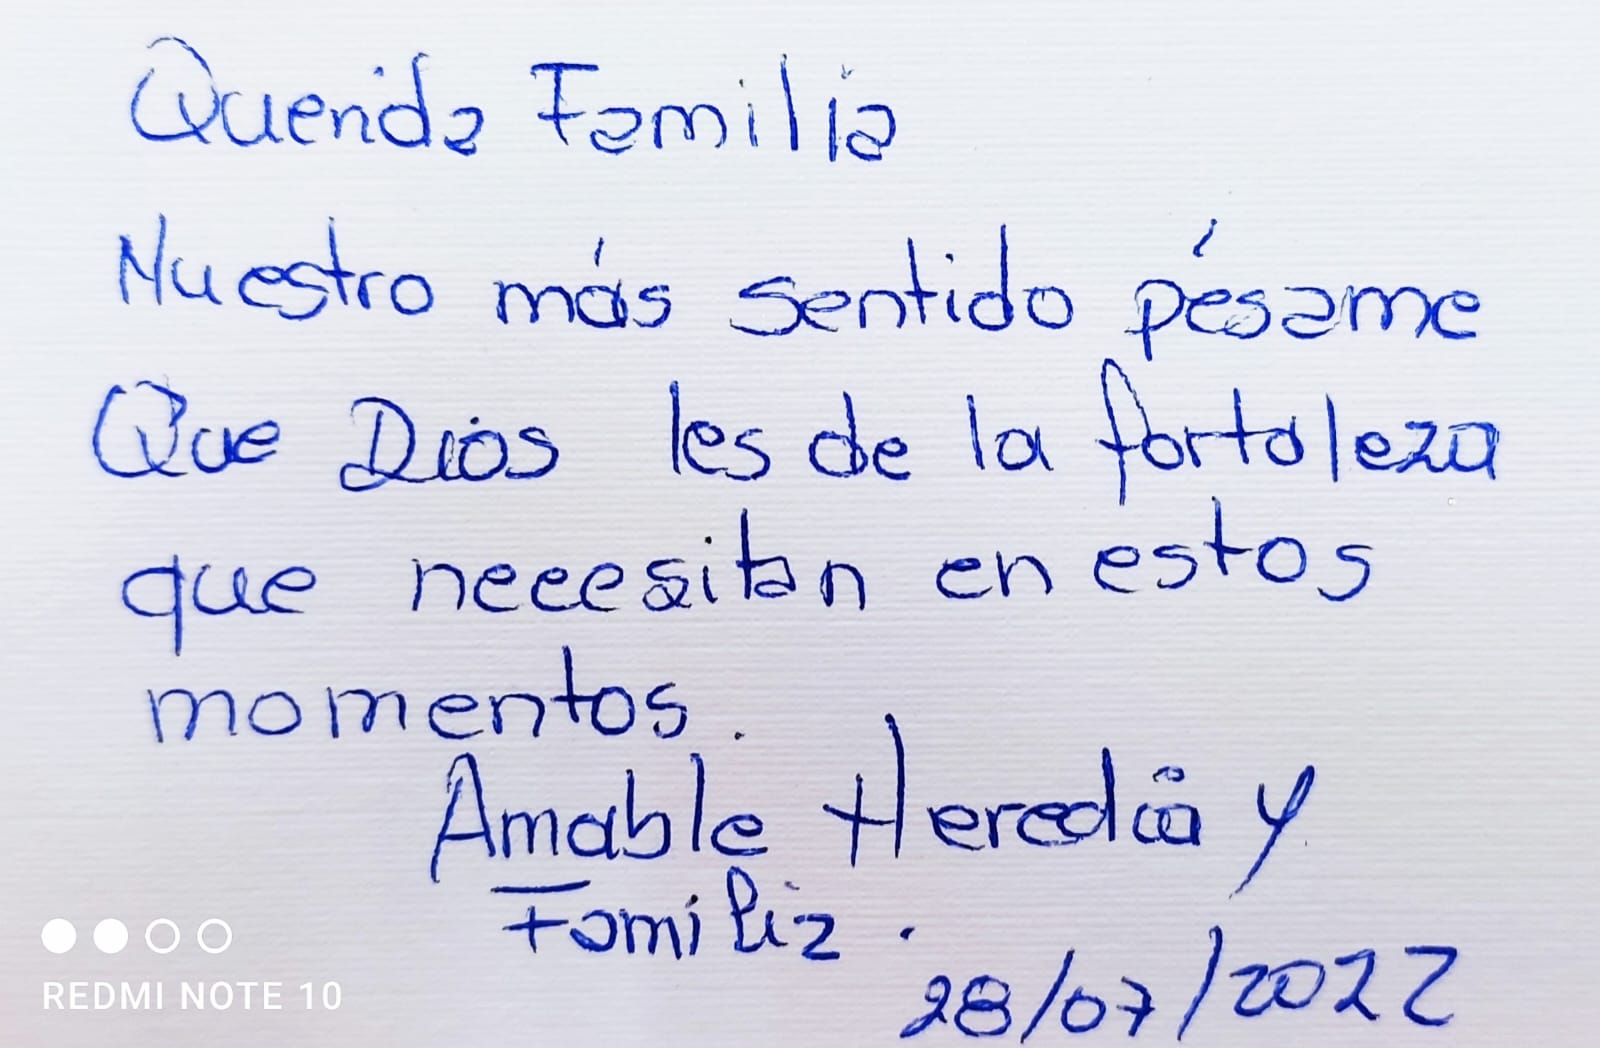 Querida Familia
Nuestro más sentido pésame
Que Dios les de la fortaleza
que necesitan en estos
momentos.
Amable Heredia y
Familia.
28/07/2022
REDMI NOTE 10